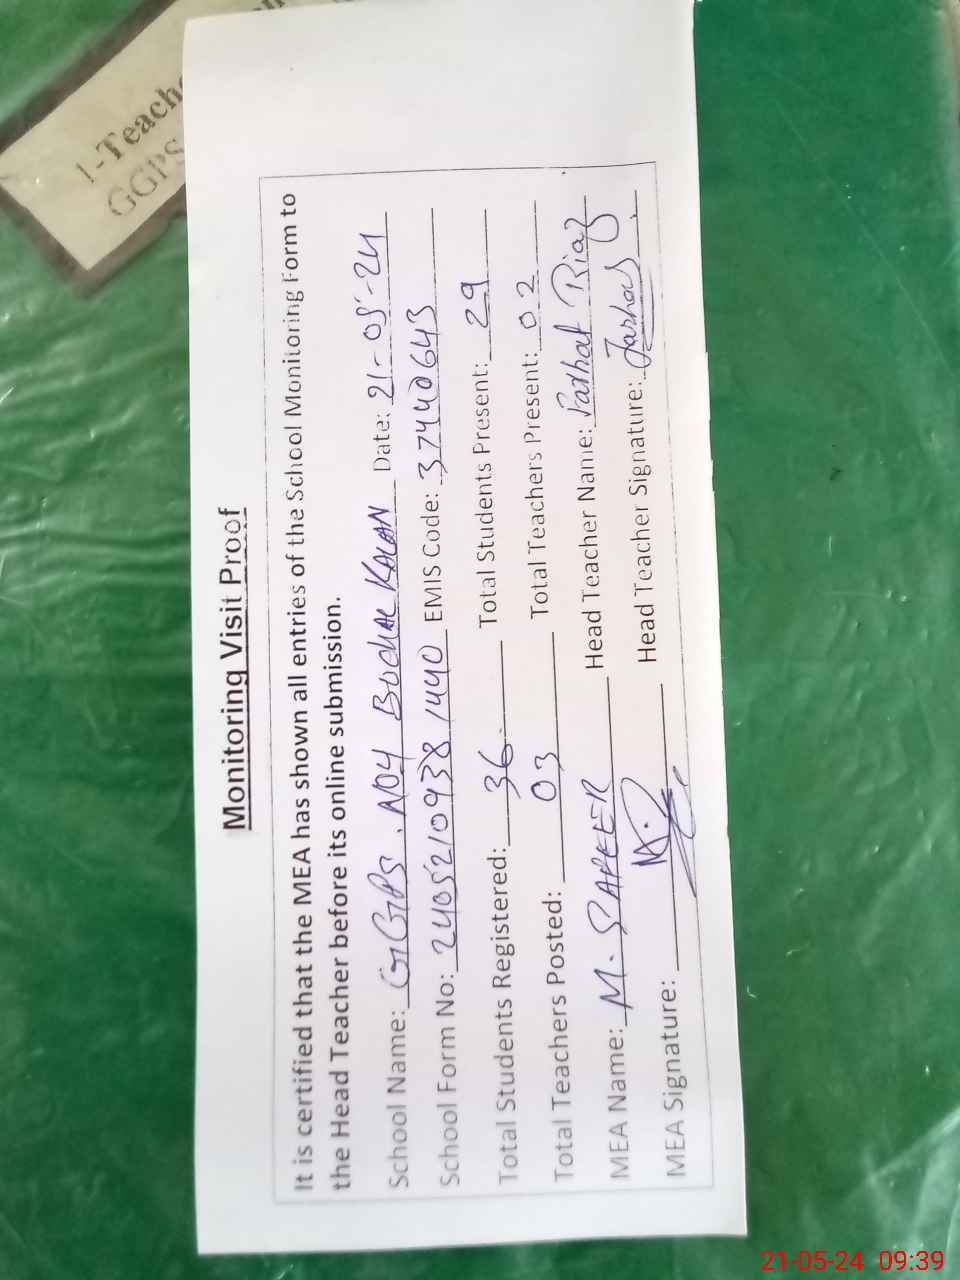 1-Teach
GGPS
Monitoring Visit Proof
It is certified that the MEA has shown all entries of the School Monitoring Form to
the Head Teacher before its online submission.
School Name: GGPS. NO4 BUCHAL KALAN Date: 21-05-24
School Form No: 24052109381440 EMIS Code: 37440643
Total Students Registered: 36 Total Students Present: 29
Total Teachers Posted: 03 Total Teachers Present: 02
MEA Name: M. SAFEER Head Teacher Name: Farhat Riaz
MEA Signature: Head Teacher Signature: Farhat
21-05-24 09:39